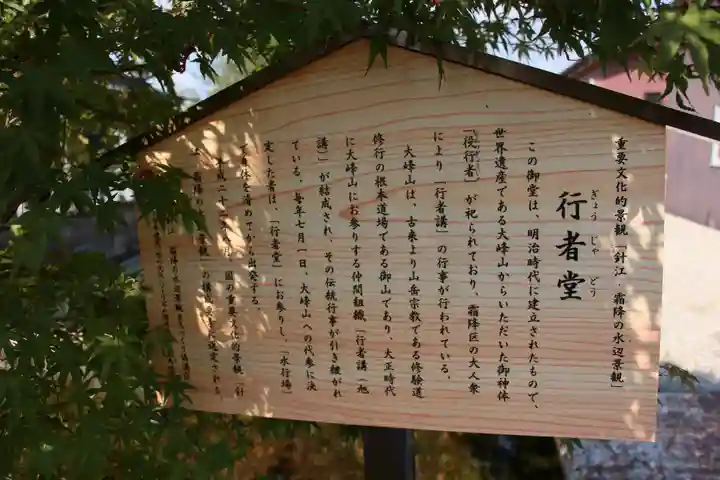 重要文化的景観「針江・霜降の水辺景観」
ぎょう じゃ どう
行者堂
この御堂は、明治時代に建立されたもので、
世界遺産である大峰山からいただいた御神体
「役行者」が祀られており、霜降区の大人衆
により「行者講」の行事が行われている。
大峰山は、古来より山岳宗教である修験道
修行の根本道場である御山であり、大正時代
に大峰山にお参りする仲間組織「行者講（地
講）」が結成され、その伝統行事が引き継がれ
ている。毎年七月一日、大峰山への代参に決
定した者は、「行者堂」にお参りし、「水行場」
で身体を清めてから出発する。
平成二十二年 月、国の重要文化的景観「針
江・霜降の水辺景観」の 選定される。
霜降の水辺景観まちづくり協議会